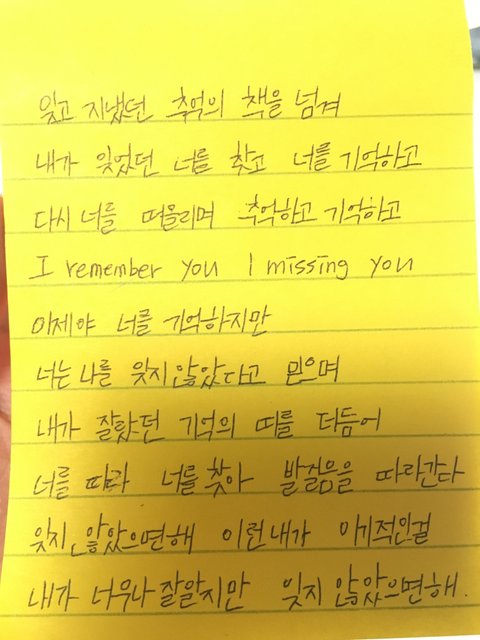 잊고 지냈던 추억의 책을 넘겨
내가 잊었던 너를 찾고 너를 기억하고
다시 너를 떠올리며 추억하고 기억하고
I remember you I missing you
이제야 너를 기억하지만
너는 나를 잊지 않았다고 믿으며
내가 잘랐던 기억의 띠를 더듬어
너를 따라 너를 찾아 발걸음을 따라간다
잊지 않았으면해 이런내가 이기적인걸
내가 너무나 잘알지만 잊지 않았으면해.